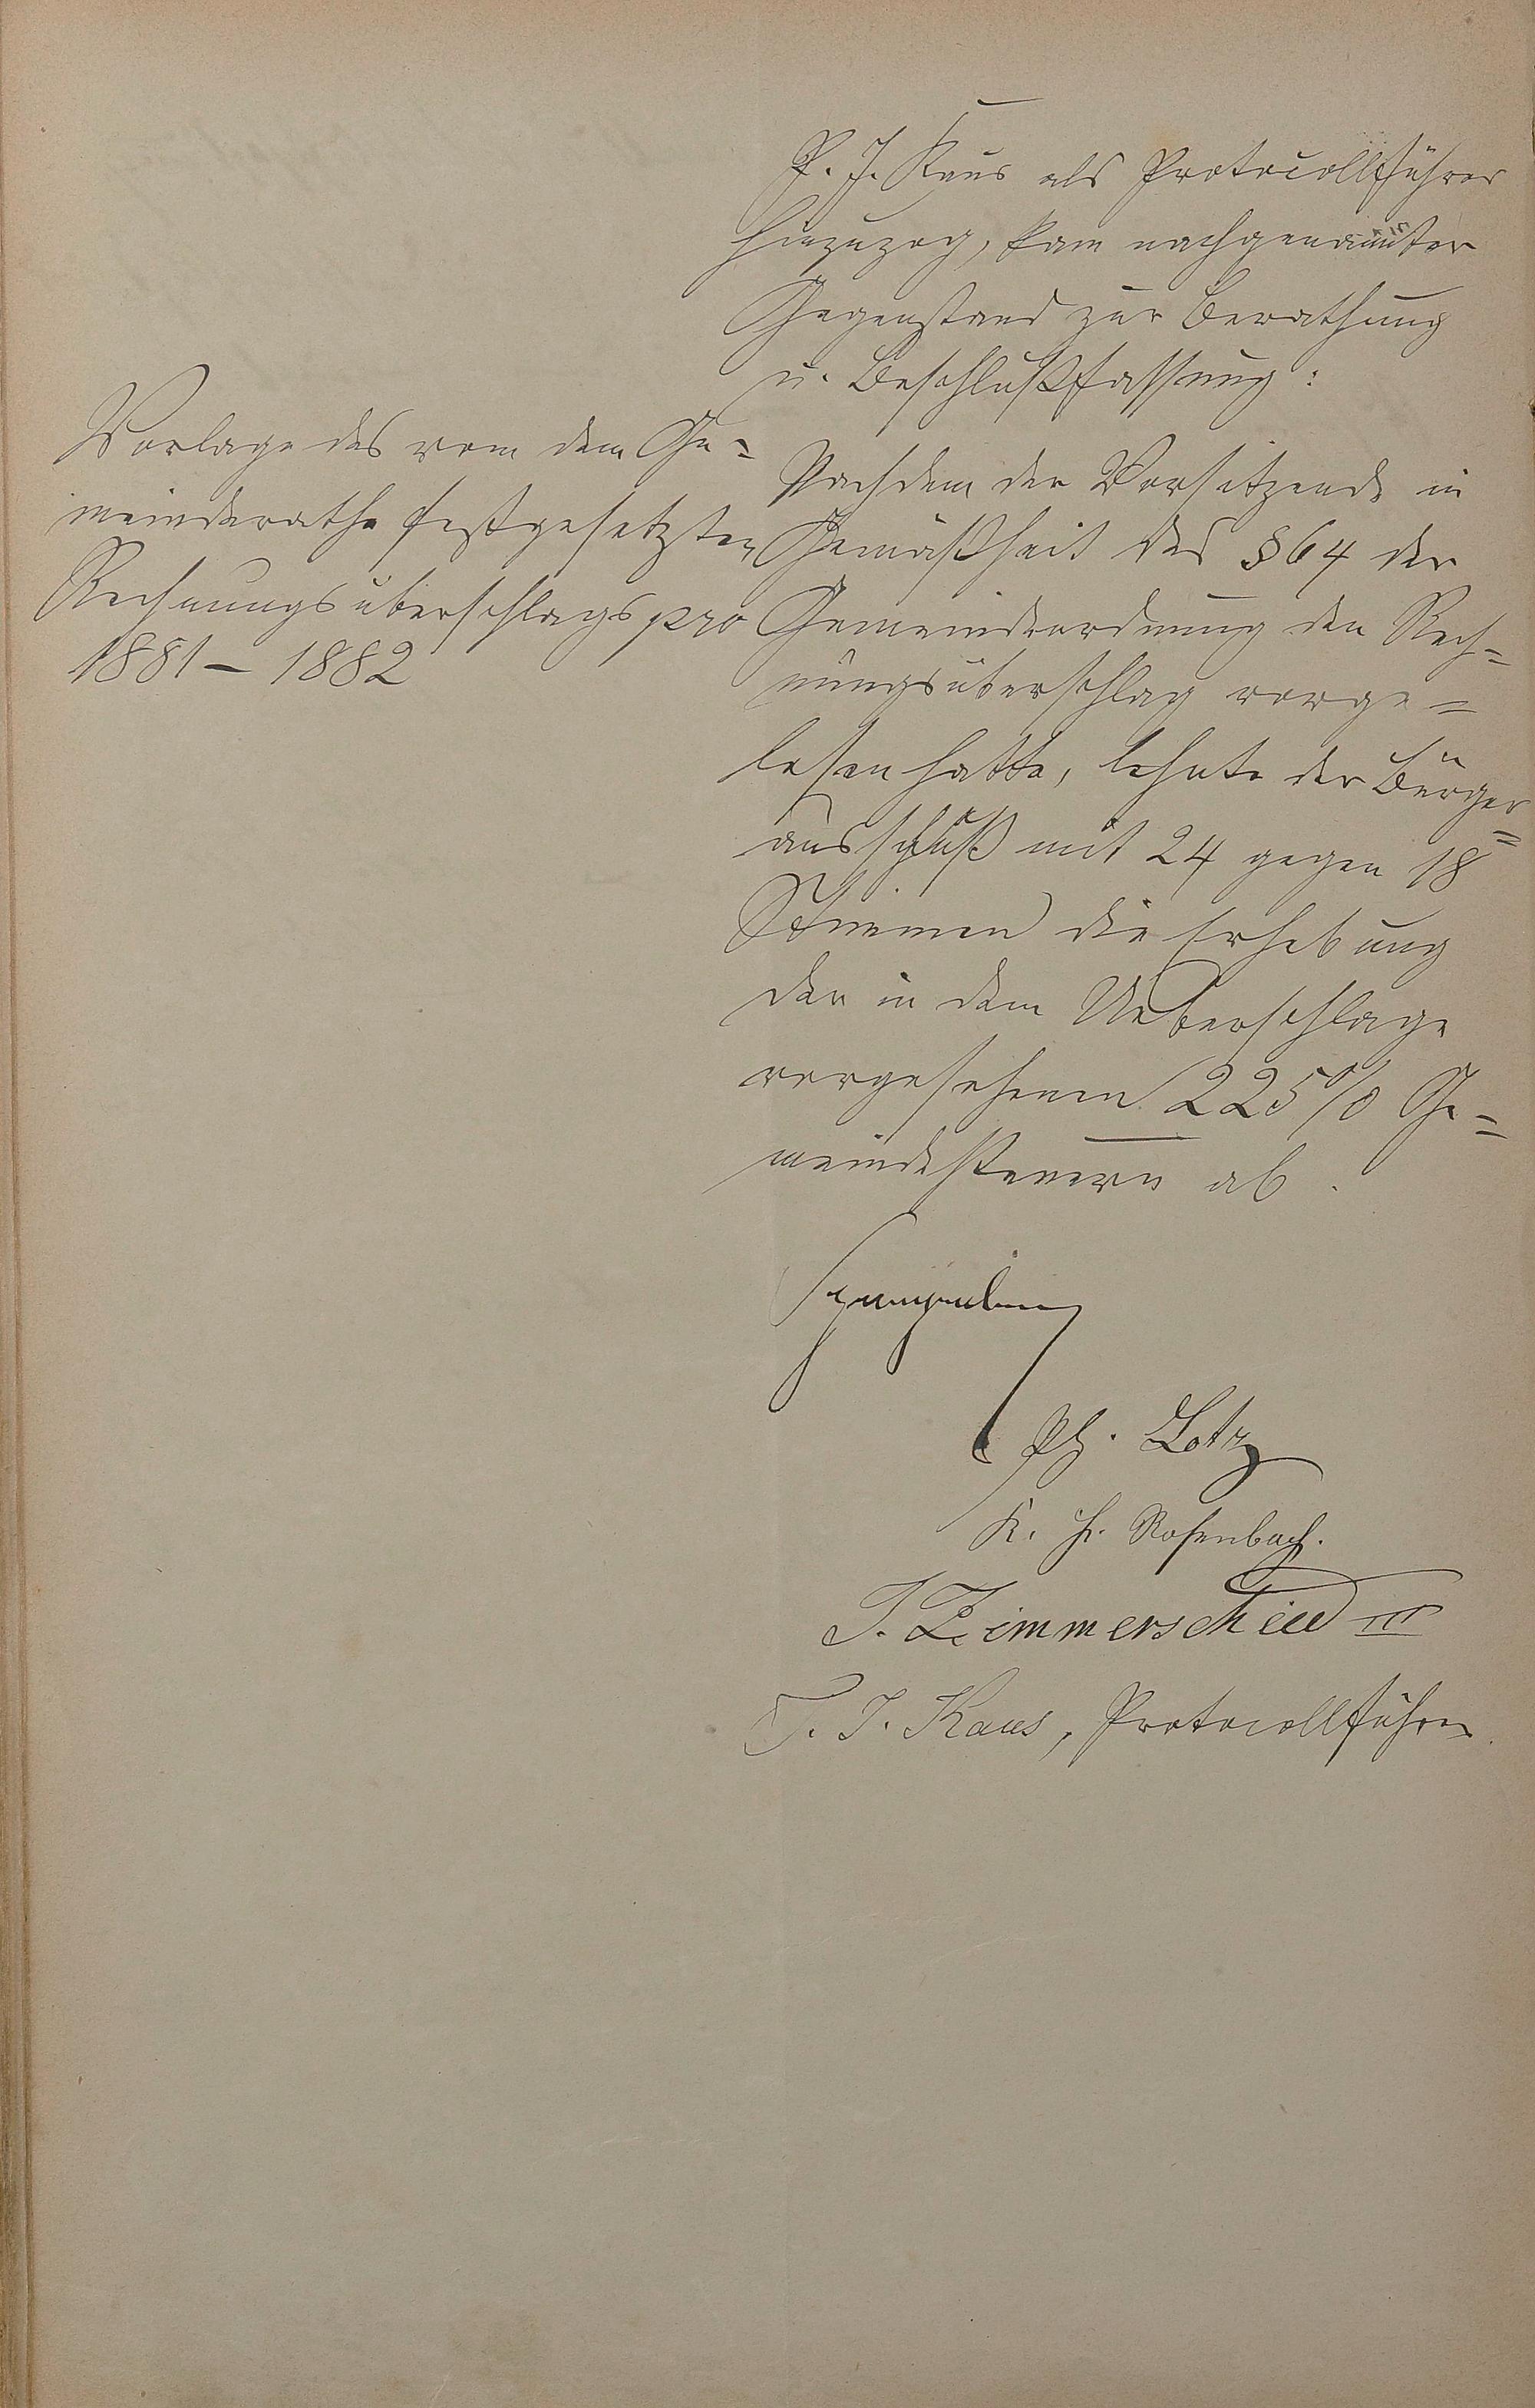 P. J. Kaus als Protocollführer
hinzuzog, kam nachgenannter
Gegenstand zur Berathung
u. Beschlußfassung:
Vorlage des vom dem Ge-
meinderathe festgesetzten
Rechnungsüberschlags pro
1881 – 1882
Nachdem der Vorsitzende in
Gemäßheit des § 64 der
Gemeindeordnung den Rech-
nungsüberschlag vorge-
lesen hatte, lehnte der Bürger-
ausschuß mit 24 gegen 18
Stimmen die Erhebung
der in dem Ueberschlage
vorgesehenen 225% Ge-
meindesteuern ab.
Ph. Lotz
K. H. Rosenbach.
J. Zimmerschied III
P. J. Kaus, Protocollführer.